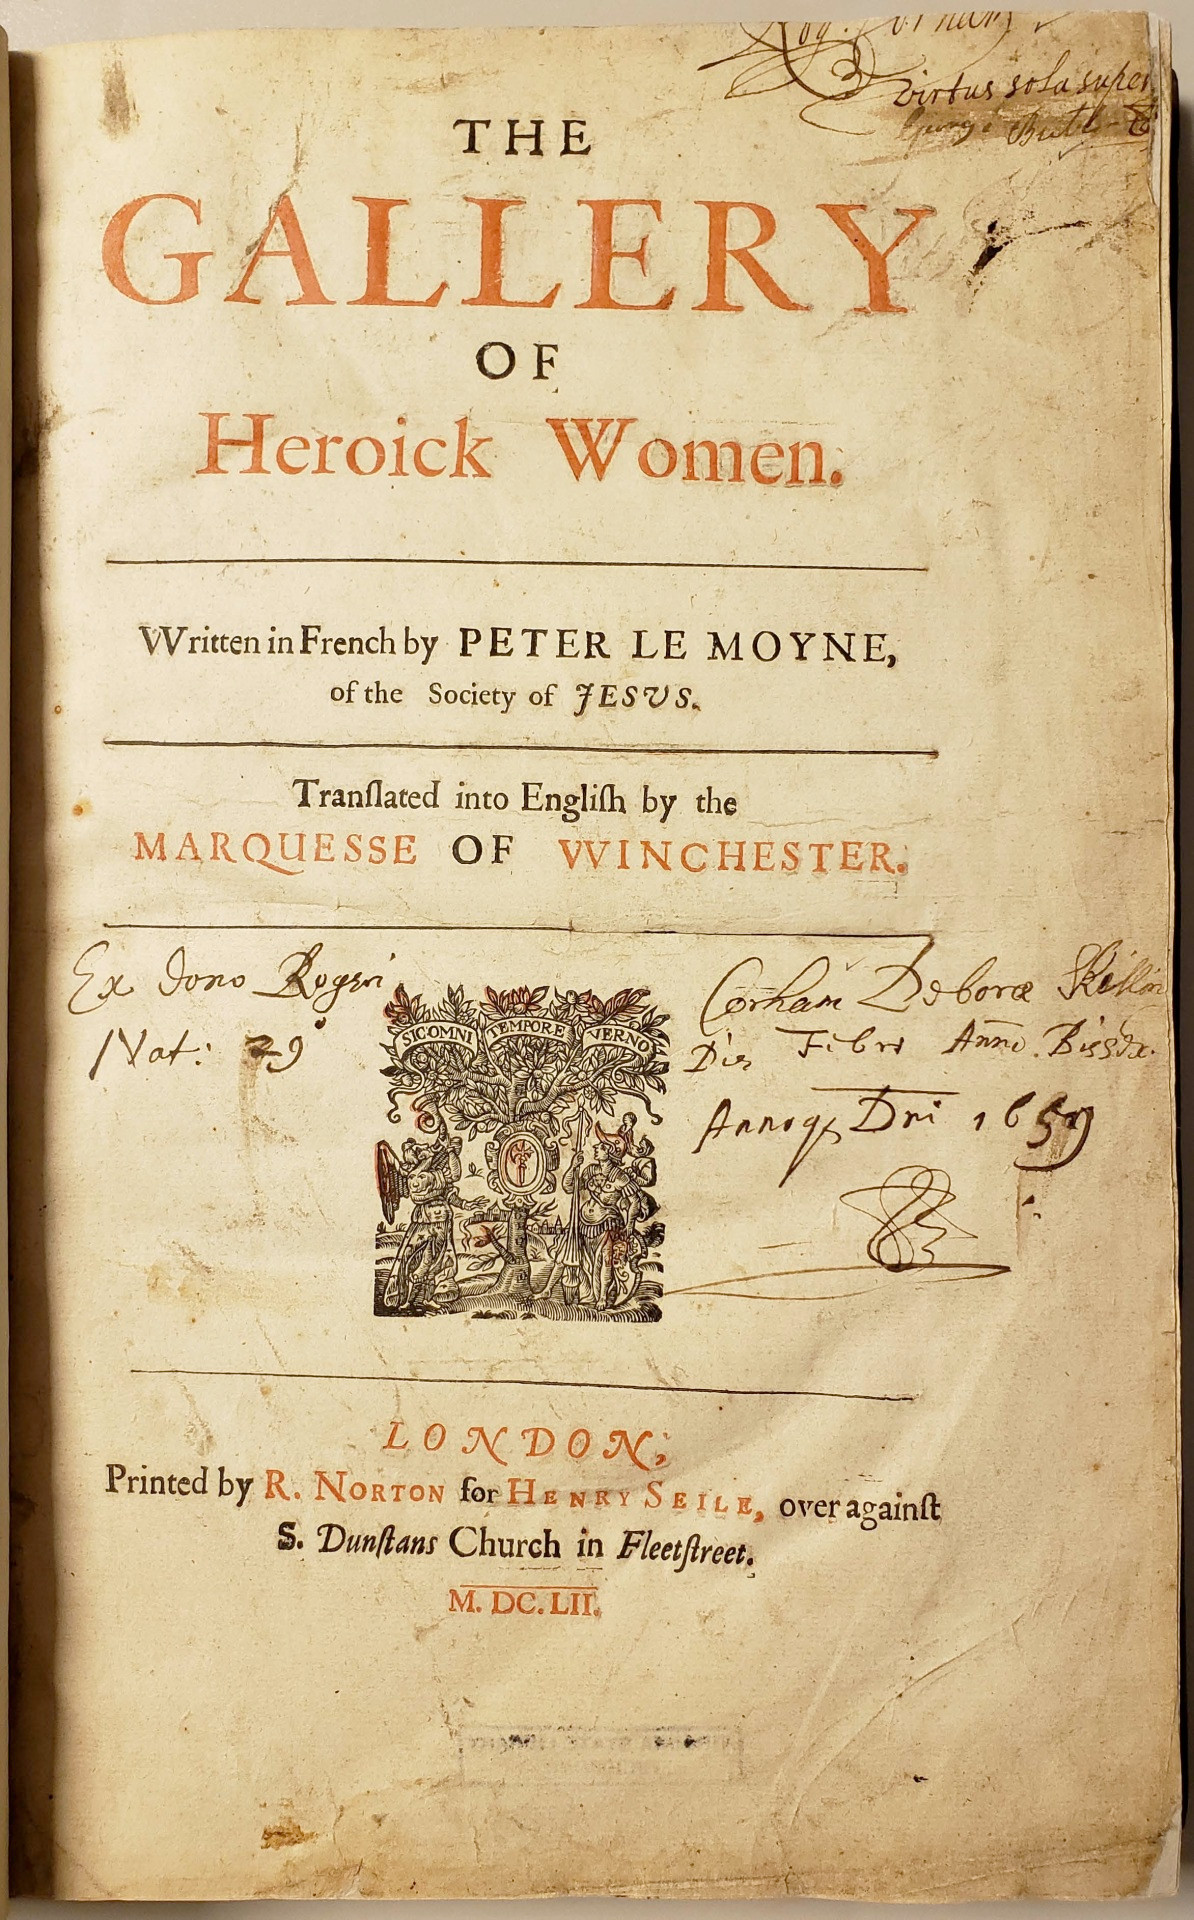 virtus sola super
THE
GALLERY
OF
Heroick Women.
Written in French by PETER LE MOYNE,
of the Society of JESVS.
Tranſlated into Engliſh by the
MARQUESSE OF WINCHESTER.
Ex dono Rogeri
Nat: 29°
Corham Deboræ
Die Febr Anno Bissex.
Annoq Dni 1659
SIC OMNI TEMPORE VERNO
LONDON,
Printed by R. NORTON for HENRY SEILE, over againſt
S. Dunſtans Church in Fleetſtreet.
M. DC. LII.